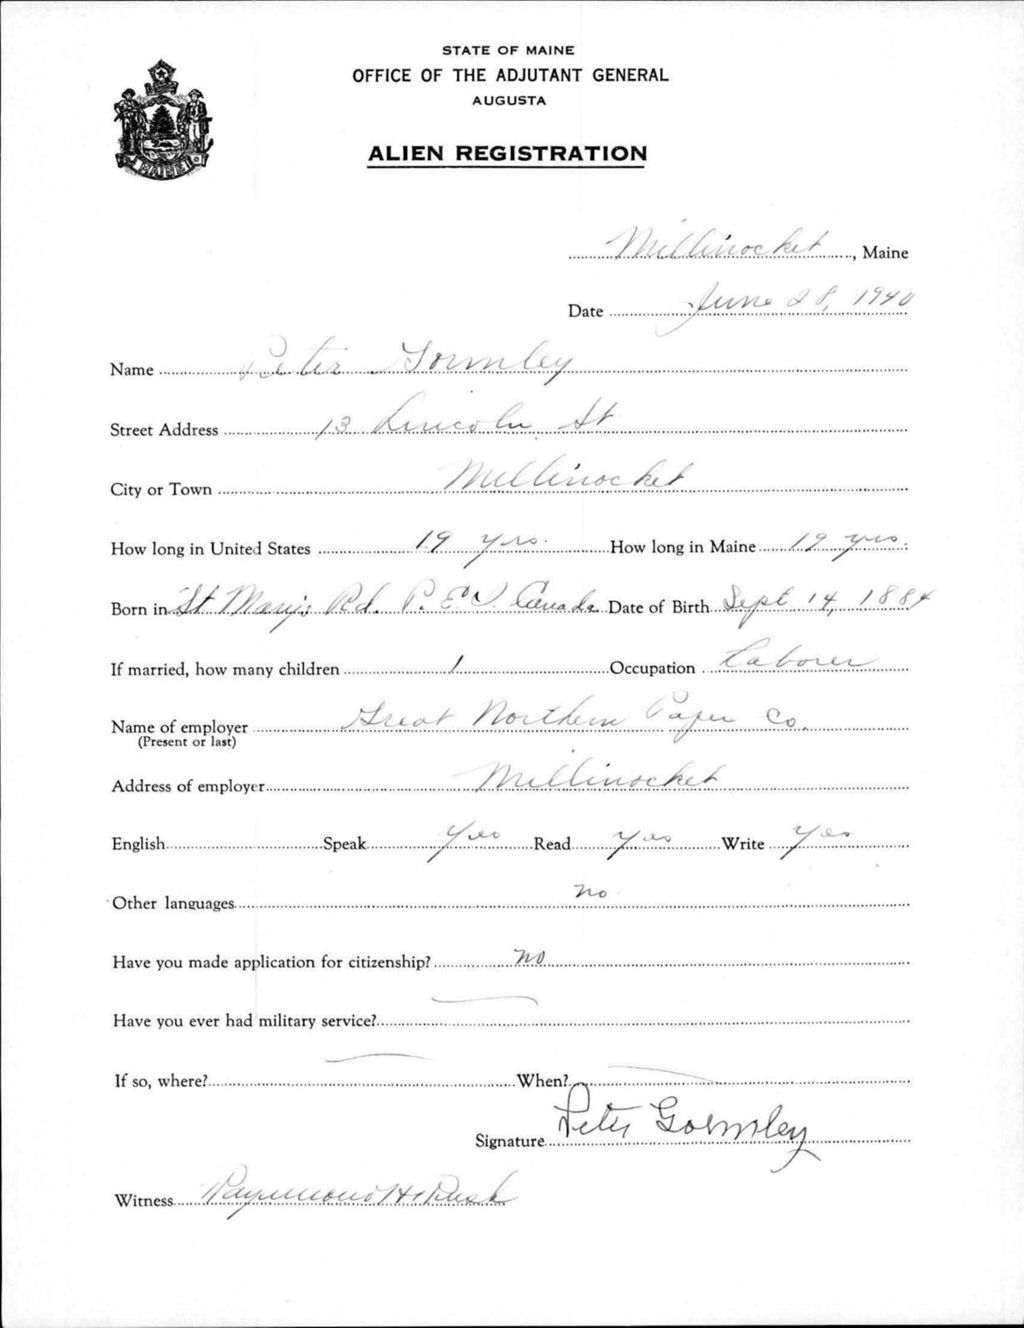 STATE OF MAINE
OFFICE OF THE ADJUTANT GENERAL
AUGUSTA
ALIEN REGISTRATION
Millinocket, Maine
Date June 28, 1940
Name Peter Gormley
Street Address 13 Lincoln St
City or Town Millinocket
How long in United States 19 yrs. How long in Maine 19 yrs.
Born in St Mary's Rd. P. E I Canada Date of Birth Sept 14, 1884
If married, how many children 1 Occupation Laborer
Name of employer Great Northern Paper Co.
(Present or last)
Address of employer Millinocket
English Speak Yes Read Yes Write Yes
Other languages no
Have you made application for citizenship? no
Have you ever had military service?
If so, where? When?
Signature Peter Gormley
Witness Raymond H. Rush